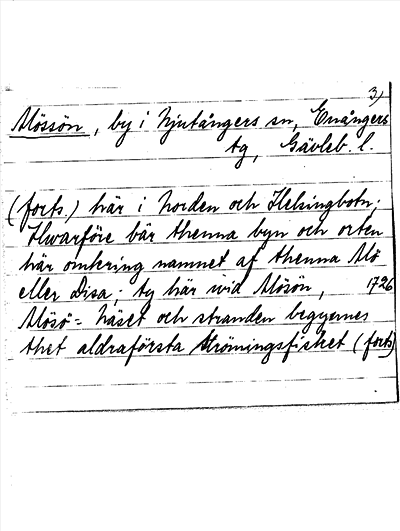 3)
Mössön, by i Njutångers sn, Enångers
tg, Gävleb. l.
(forts.) här i Norden och Helsingbotn;
Hwarföre bär thenna byn och orten
här omkring namnet af thenna Mö
eller Disa; ty här wid Mösön, 1726
Mösö-näset och stranden begynnes
thet aldraförsta strömingsfisket (forts)